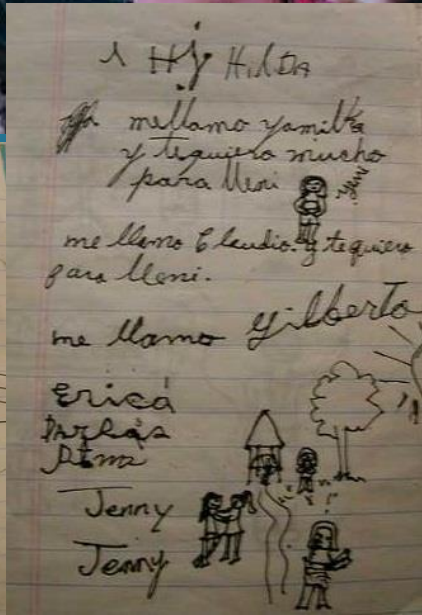 Hilda
me llamo yamilka
y te quiero mucho
para lleni
me llamo Claudio y te quiero
para lleni.
me llamo Gilberto
Erica
Jenny
Jenny